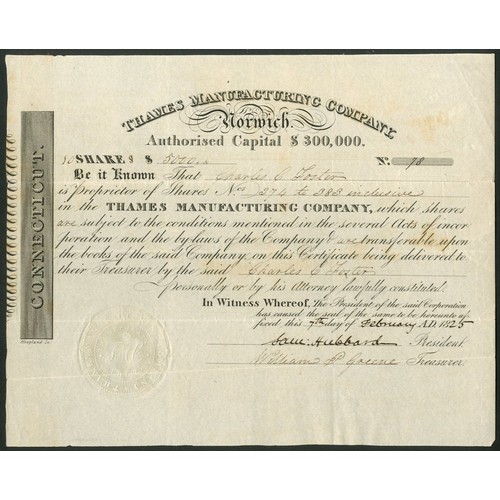 THAMES MANUFACTURING COMPANY
Norwich.
Authorised Capital $ 300,000.
10 SHARES $ 5000..
No. 78
Be it Known That Charles C Foster
is proprietor of Shares Nos 374 to 383 inclusive
in the THAMES MANUFACTURING COMPANY, which shares
are subject to the conditions mentioned in the several Acts of incor
poration and the by-laws of the Company & are transferable upon
the books of the said Company, on this Certificate being delivered to
their Treasurer by the said Charles C Foster
personally or by his Attorney lawfully constituted.
In Witness Whereof, The President of the said Corporation
has caused the seal of the same to be hereunto af
fixed this 7th day of February A.D. 1825
Sam. Hubbard President.
William P. Greene Treasurer.
CONNECTICUT.